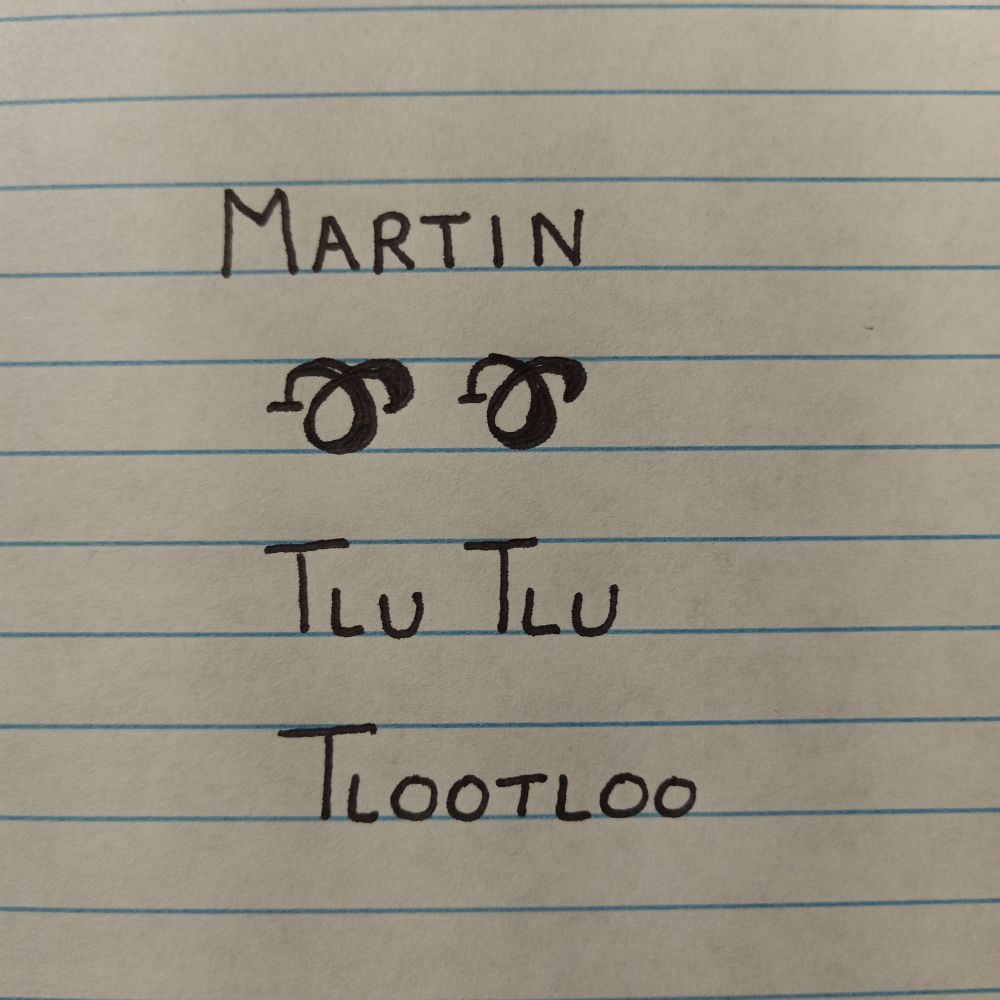 MARTIN
Ꮱ Ꮱ
TLU TLU
TLOOTLOO